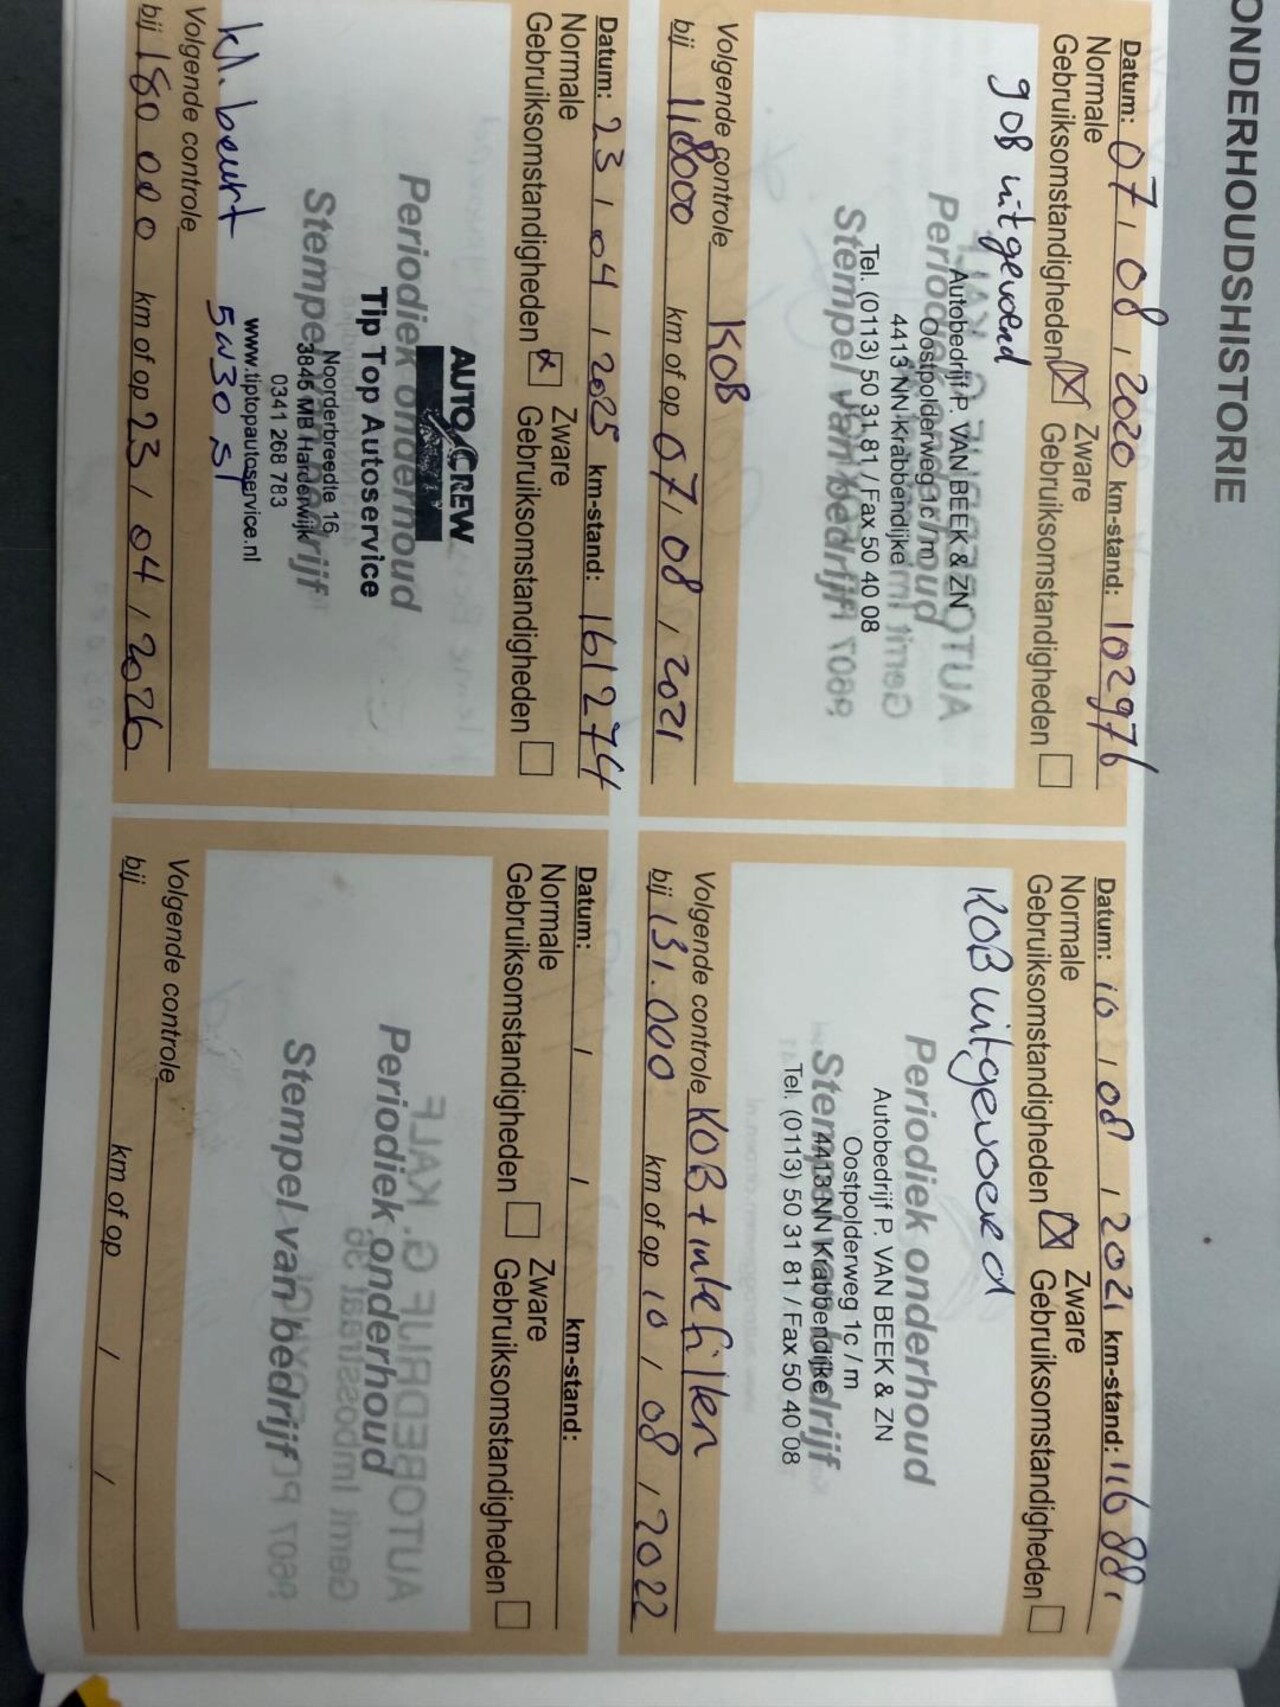 ONDERHOUDSHISTORIE
Datum: 07 / 08 / 2020 km-stand: 102976
Normale Zware
Gebruiksomstandigheden Gebruiksomstandigheden
gOB uitgevoerd
Periodiek onderhoud
Autobedrijf P. VAN BEEK & ZN
Oostpolderweg 1c / m
4413 NN Krabbendijke
Stempel van bedrijf
Tel. (0113) 50 31 81 / Fax 50 40 08
Volgende controle KOB
bij 118000 km of op 07 / 08 / 2021
Datum: 10 / 08 / 2021 km-stand: 116 881
Normale Zware
Gebruiksomstandigheden Gebruiksomstandigheden
KOB uitgevoerd
Periodiek onderhoud
Autobedrijf P. VAN BEEK & ZN
Oostpolderweg 1c / m
4413 NN Krabbendijke
Stempel van bedrijf
Tel. (0113) 50 31 81 / Fax 50 40 08
Volgende controle KOB + intefilter
bij 131.000 km of op 10 / 08 / 2022
Datum: 23 / 04 / 2025 km-stand: 161274
Normale Zware
Gebruiksomstandigheden Gebruiksomstandigheden
AUTO CREW
Periodiek onderhoud
Tip Top Autoservice
Noorderbreedte 16
Stempel van bedrijf
3845 MB Harderwijk
0341 268 783
www.tiptopautoservice.nl
kl. beurt 5W30 sl
Volgende controle
bij 180 000 km of op 23 / 04 / 2026
Datum: / / km-stand:
Normale Zware
Gebruiksomstandigheden Gebruiksomstandigheden
Periodiek onderhoud
Stempel van bedrijf
Volgende controle
bij km of op / /